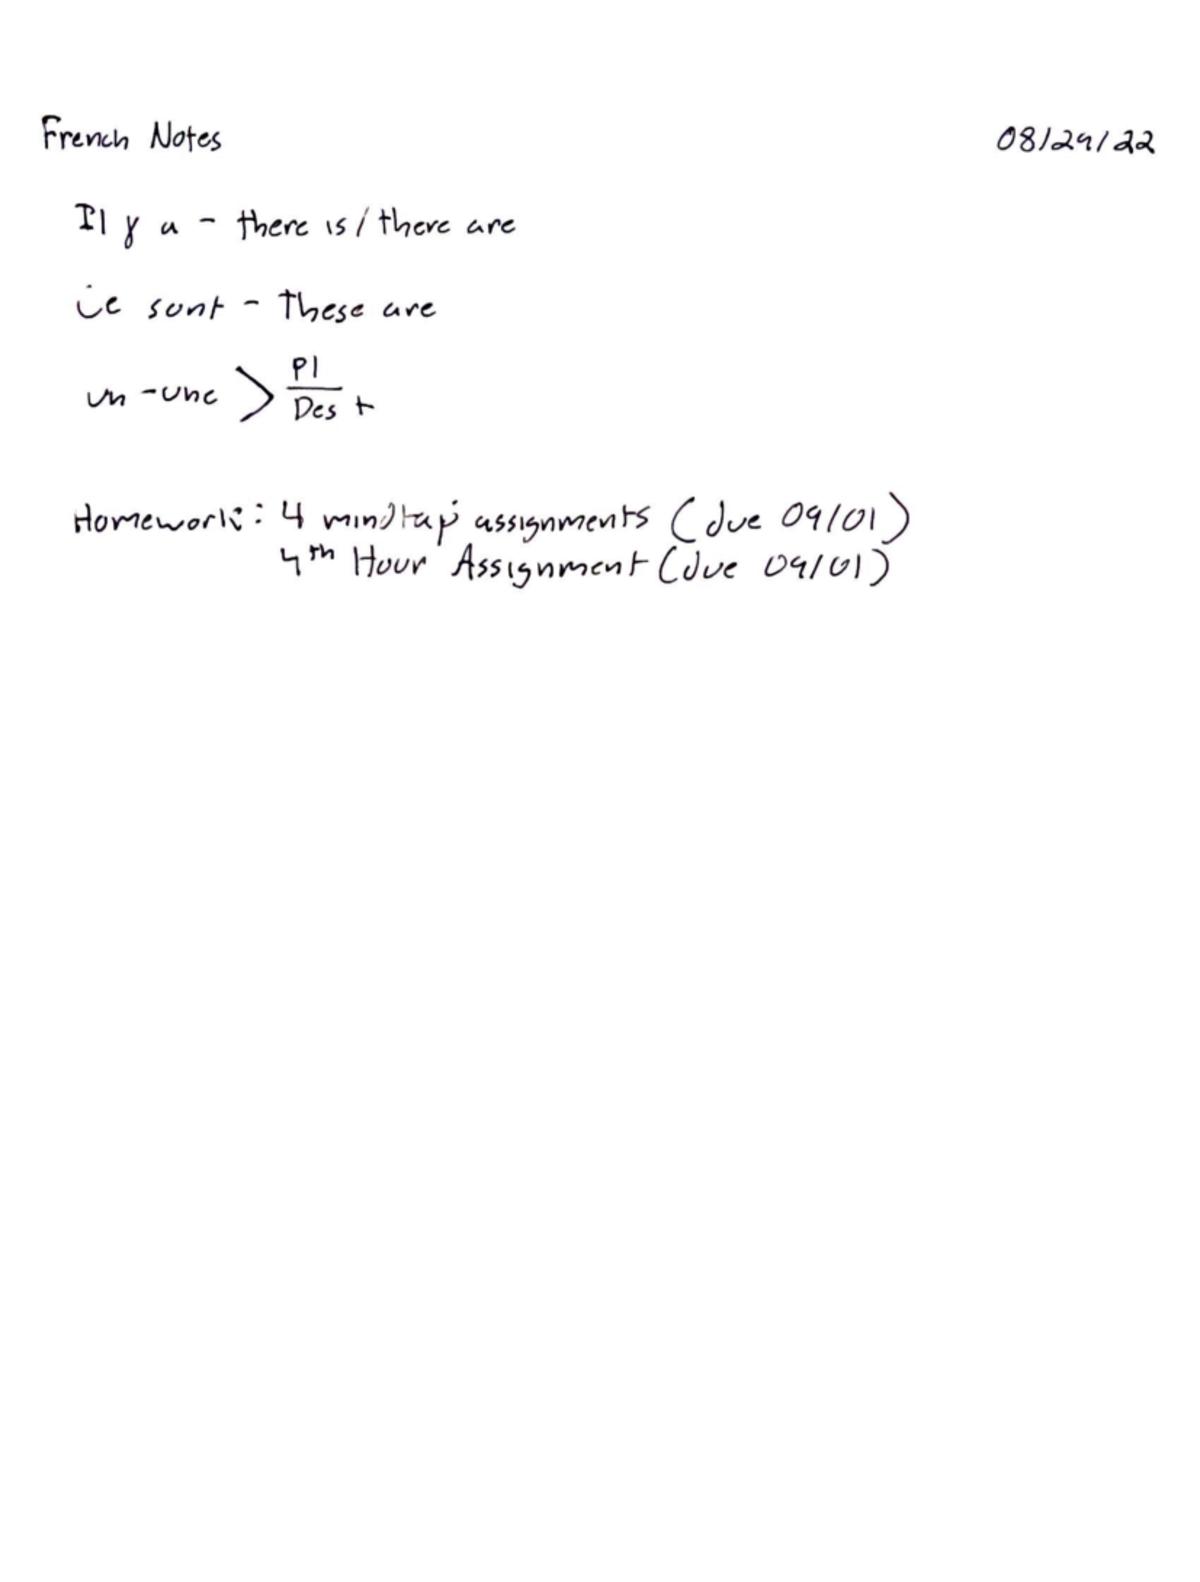 French Notes 08/29/22
Il y a - there is / there are
ce sont - These are
un - une > Pl
Des +
Homework: 4 mindtap assignments (due 09/01)
4th Hour Assignment (due 09/01)